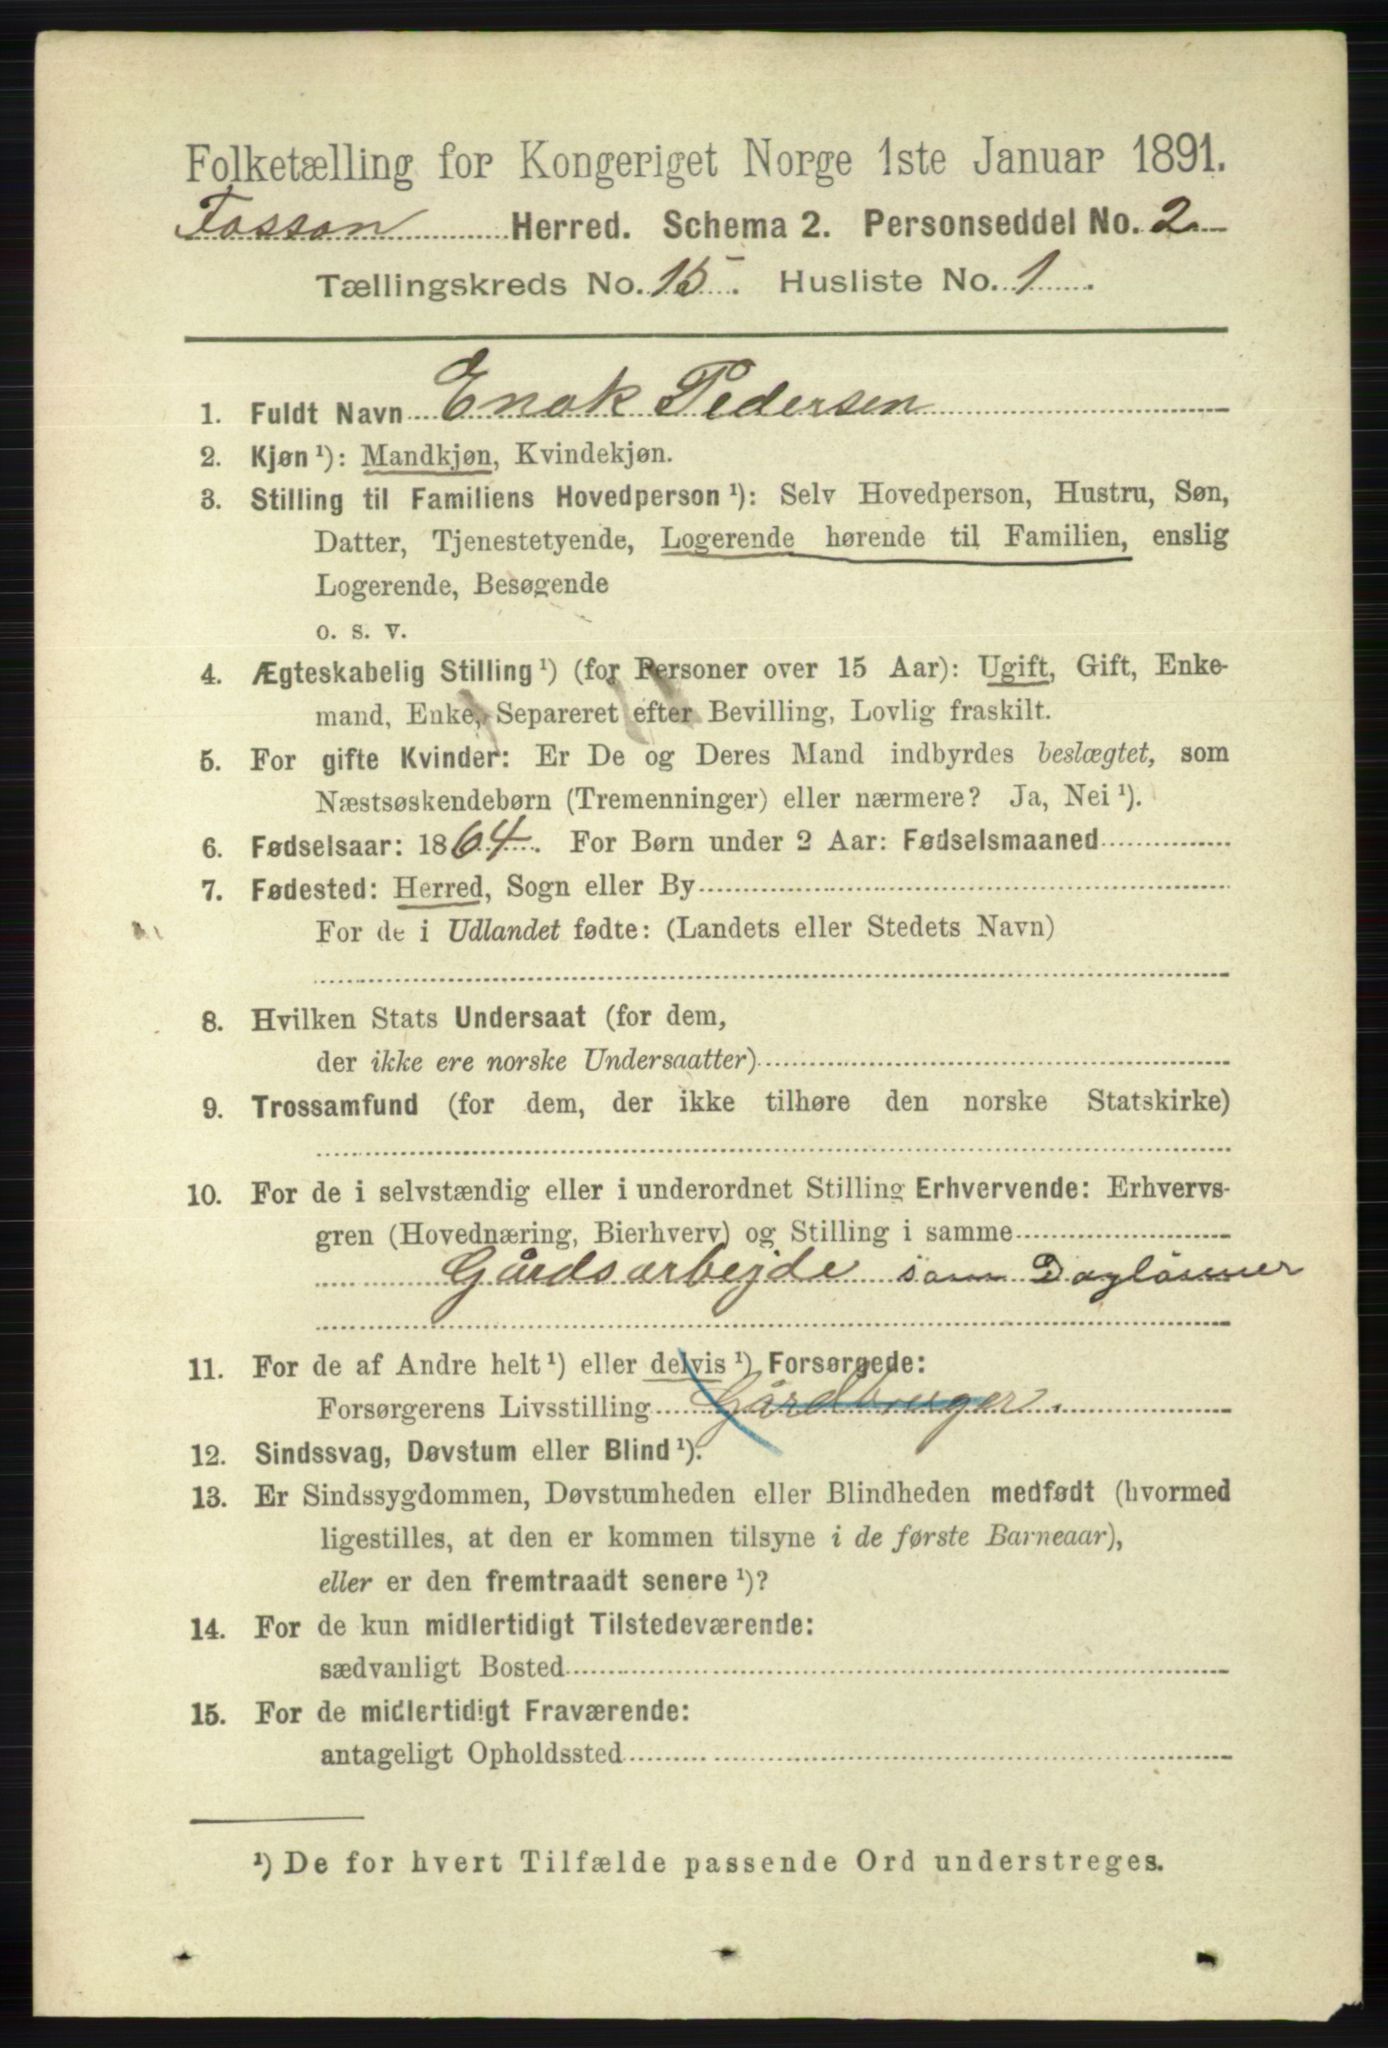 Folketælling for Kongeriget Norge 1ste Januar 1891.
Fossan Herred. Schema 2. Personseddel No. 2
Tællingskreds No. 15. Husliste No. 1
1. Fuldt Navn Enok Pedersen
2. Kjøn ¹): Mandkjøn, Kvindekjøn.
3. Stilling til Familiens Hovedperson ¹): Selv Hovedperson, Hustru, Søn,
Datter, Tjenestetyende, Logerende hørende til Familien, enslig
Logerende, Besøgende
o. s. v.
4. Ægteskabelig Stilling ¹) (for Personer over 15 Aar): Ugift, Gift, Enke-
mand, Enke, Separeret efter Bevilling, Lovlig fraskilt.
5. For gifte Kvinder: Er De og Deres Mand indbyrdes beslægtet, som
Næstsøskendebørn (Tremenninger) eller nærmere? Ja, Nei ¹).
6. Fødselsaar: 1864. For Børn under 2 Aar: Fødselsmaaned
7. Fødested: Herred, Sogn eller By
For de i Udlandet fødte: (Landets eller Stedets Navn)
8. Hvilken Stats Undersaat (for dem,
der ikke ere norske Undersaatter)
9. Trossamfund (for dem, der ikke tilhøre den norske Statskirke)
10. For de i selvstændig eller i underordnet Stilling Erhvervende: Erhvervs-
gren (Hovednæring, Bierhverv) og Stilling i samme
Gårdsarbejde som Daglönner
11. For de af Andre helt ¹) eller delvis ¹) Forsørgede:
Forsørgerens Livsstilling Gårdbruger.
12. Sindssvag, Døvstum eller Blind ¹).
13. Er Sindssygdommen, Døvstumheden eller Blindheden medfødt (hvormed
ligestilles, at den er kommen tilsyne i de første Barneaar),
eller er den fremtraadt senere ¹)?
14. For de kun midlertidigt Tilstedeværende:
sædvanligt Bosted
15. For de midlertidigt Fraværende:
antageligt Opholdssted
¹) De for hvert Tilfælde passende Ord understreges.